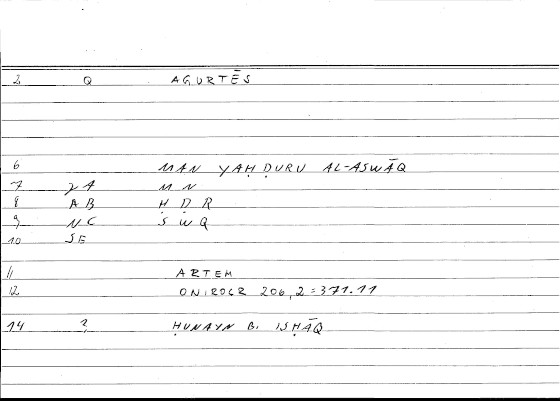 2 Q AGURTĒS
6 MAN YAḤḌURU AL-ASWĀQ
7 γA MN
8 AB ḤḌR
9 NC SWQ
10 SE
11 ARTEM
12 ONIROCR 206,2=371.11
14 2 ḤUNAYN B. ISḤĀQ